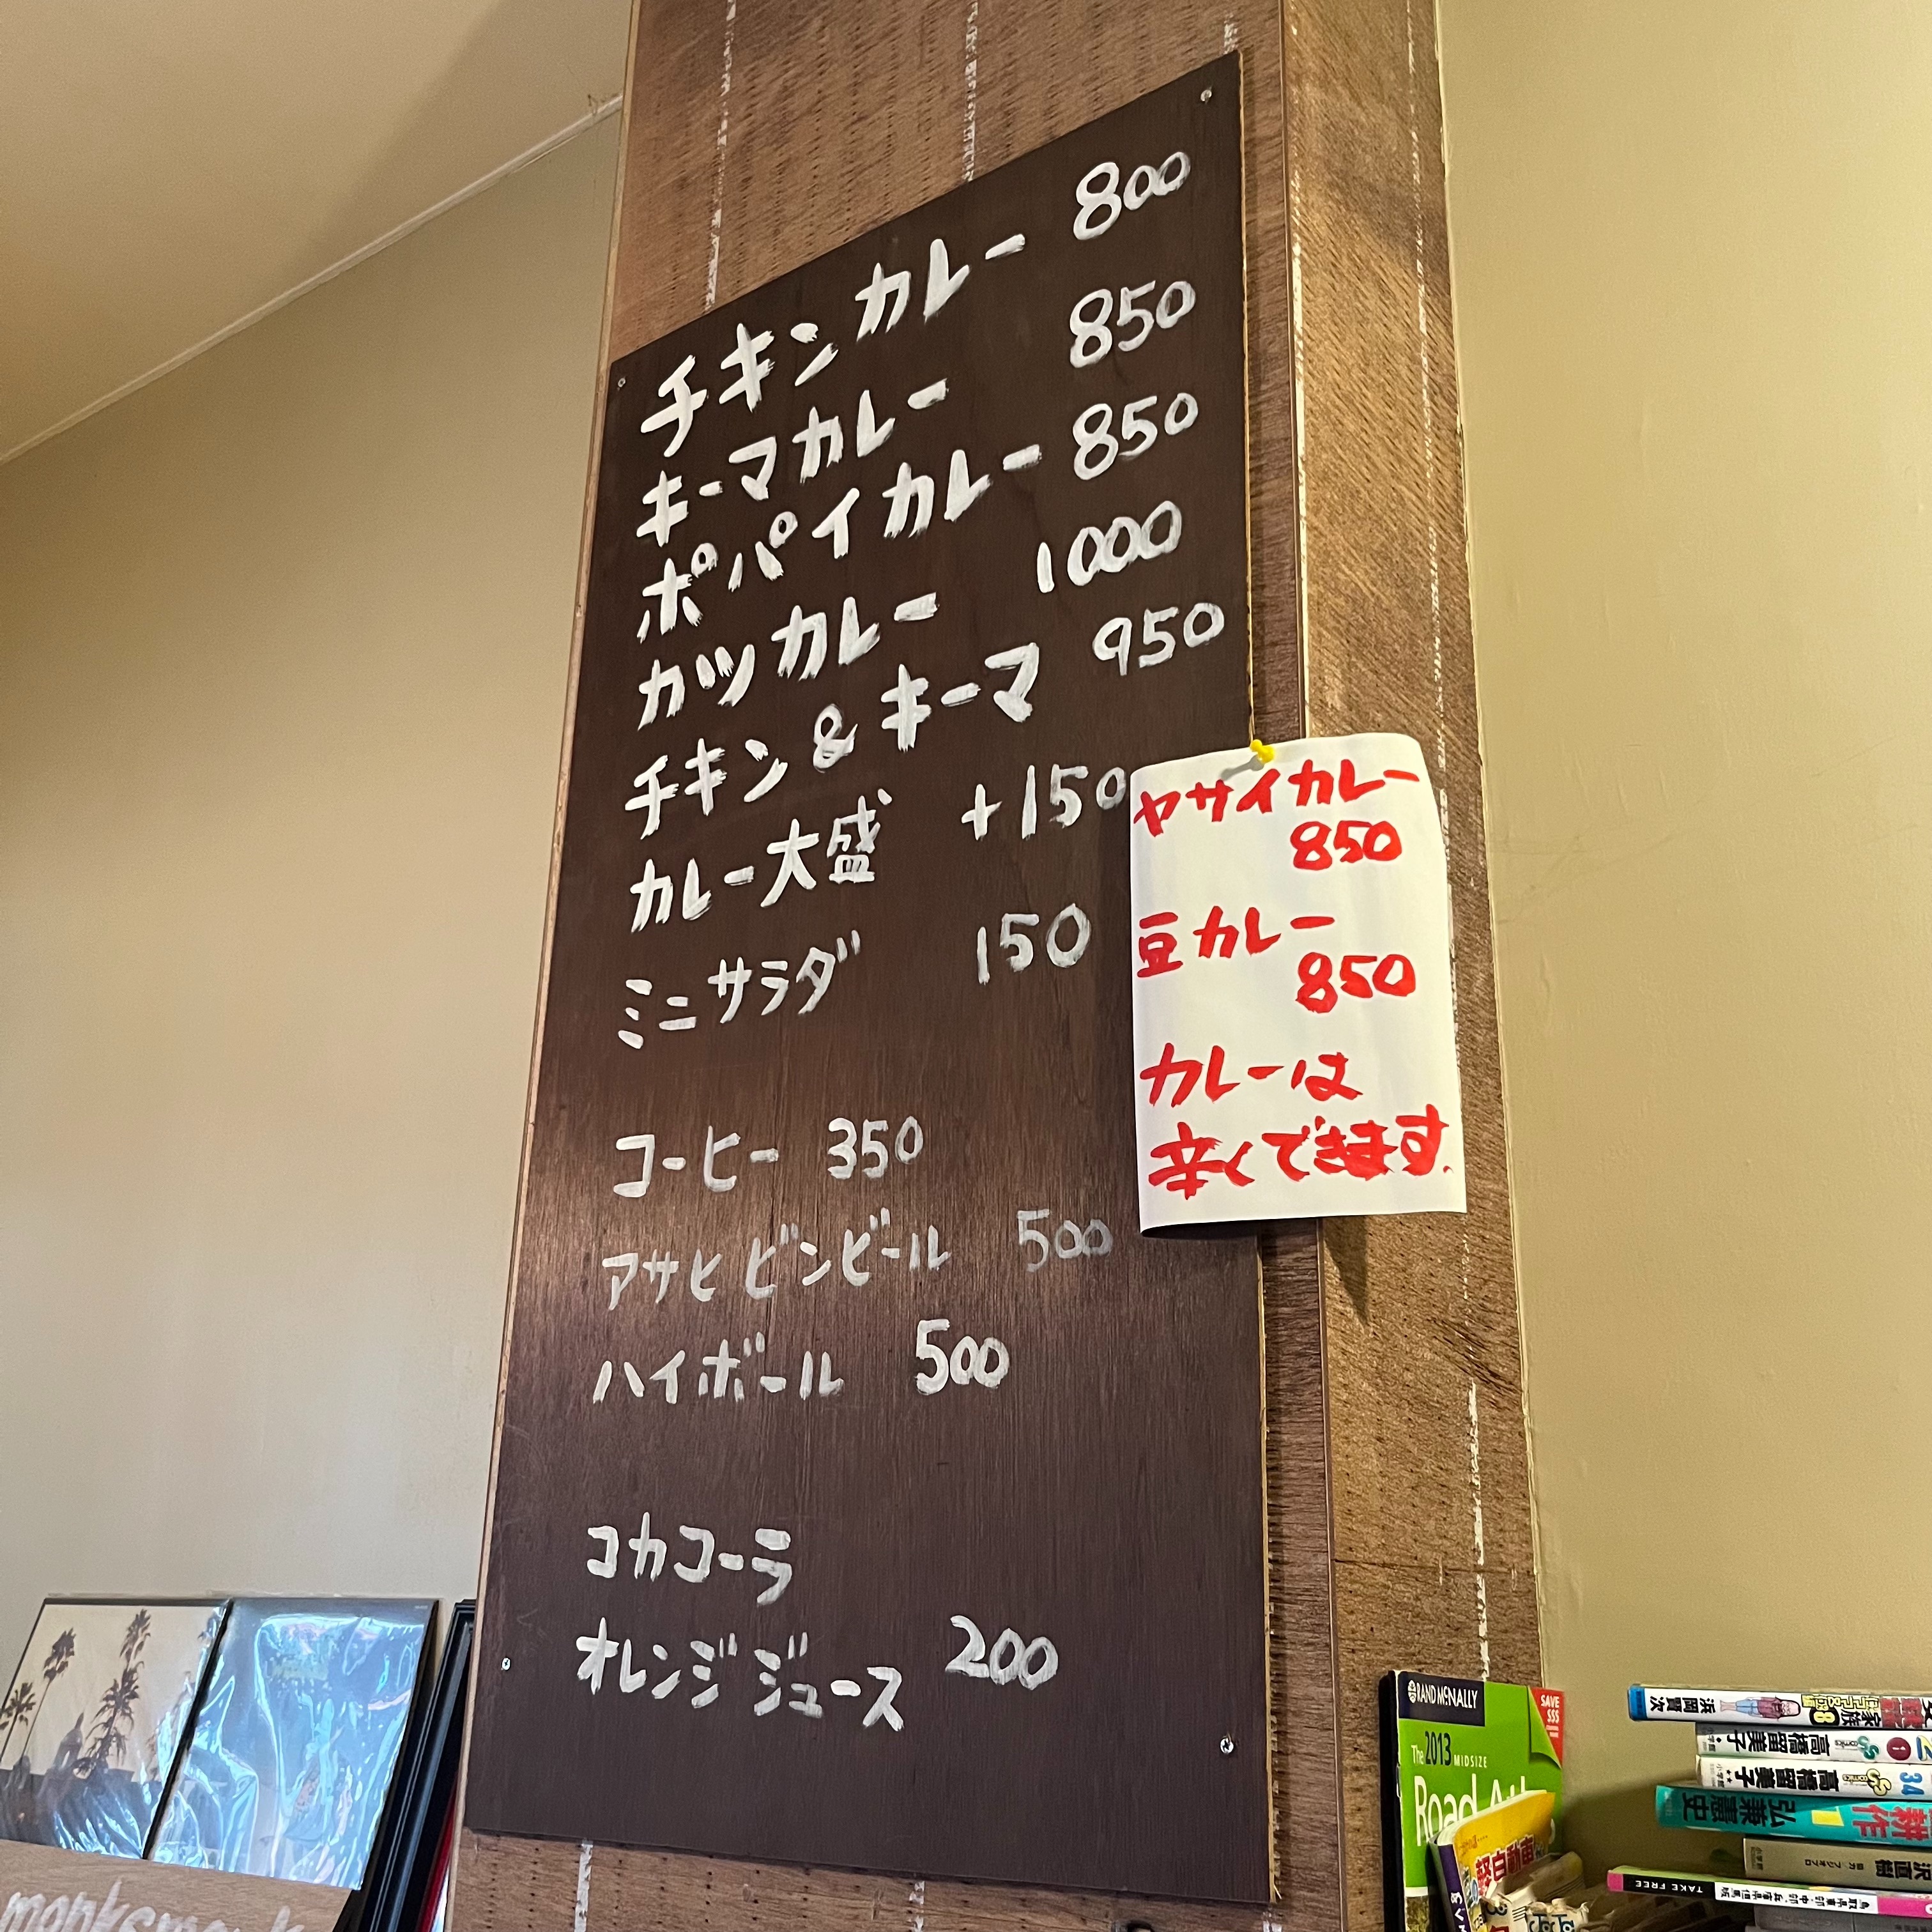 チキンカレー 800
キーマカレー 850
ポパイカレー 850
カツカレー 1000
チキン&キーマ 950
カレー大盛 +150
ミニサラダ 150
コーヒー 350
アサヒビンビール 500
ハイボール 500
コカコーラ
オレンジジュース 200
ヤサイカレー
850
豆カレー
850
カレーは
辛くできます.
RAND McNALLY
SAVE
$$$
The 2013 MIDSIZE
Road
浜岡賢次
家族
高橋留美子
高橋留美子
34
弘兼憲史
耕作
TAKE FREE